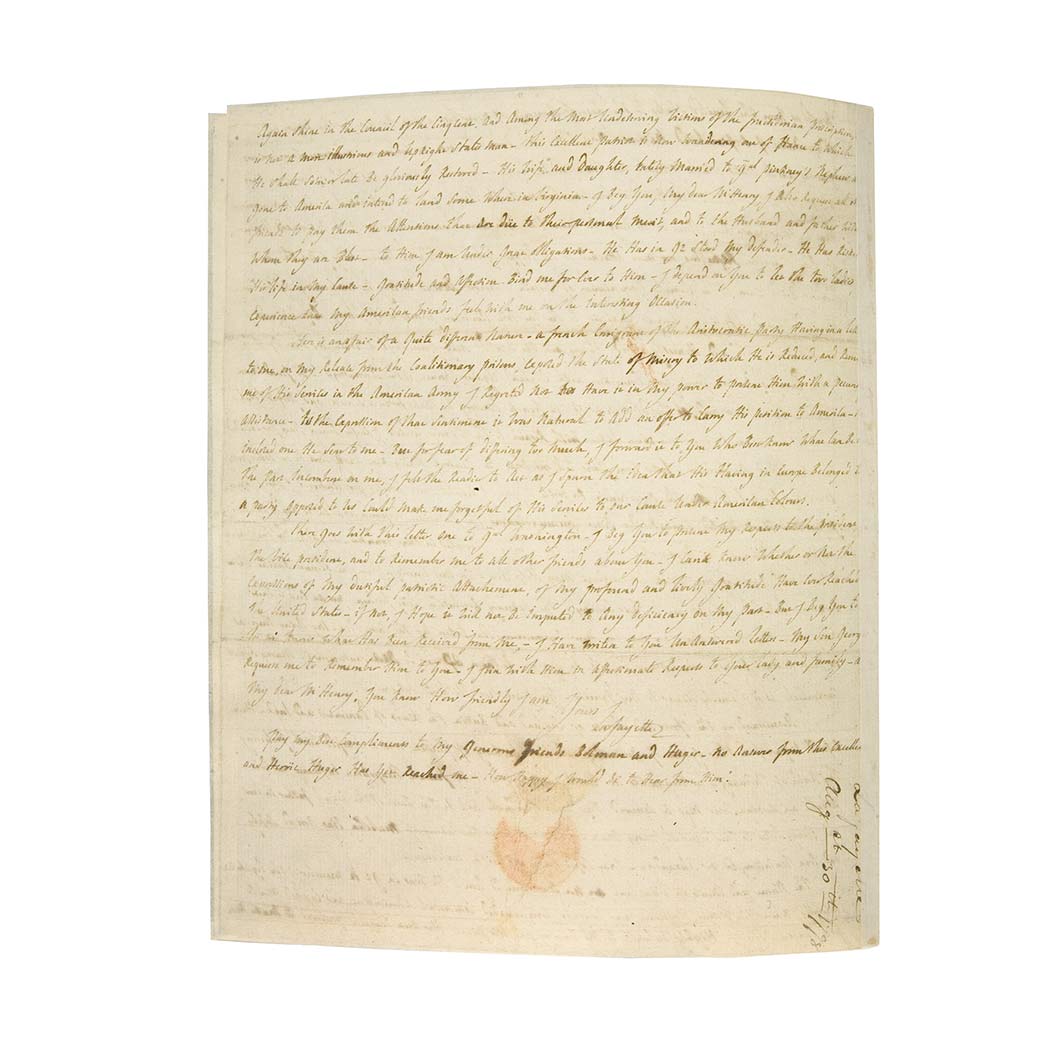 Again Shine in the Council of the Cinq Cent. And Among the Most Undeserving Victims of the Proscription
is not a more illustrious and Upright States man - this Excellent patriot is now Wandering out of France to Which
He Shall Sooner or late Be gloriously Restored - His Wife, and Daughter, lately Married to gal pinkney's Nephew
gone to America and intend to land Some Where in Virginia - I Beg You, My dear McHenry, I Also Request all
friends to pay them the Attentions that are due to their personal Merit, and to the Husband and father
Whom they are - to Him I am Under Great Obligations - He Has in 92 Stood My Defender - He Has Risked
His life in My Cause - Gratitude and Affection Bind me for Ever to Him - I depend on You to let the two ladies
Experience that My American friends feel with me on the Interesting Occasion.
Here is an affair of a Quite different Nature - a french Emigrant of the Aristocratic party Having in a
to me, on my Release from the Coalitionary prisons, exposed the State of Misery to Which He is Reduced, and
me of His Services in the American Army I Regreted Not to Have it in My power to present Him With a
assistance - to the Expression of that Sentiment it Was Natural to add an offer to Carry His petition to America -
inclosed one He Sent to me - But for fear of differing too Much, I forward it to You Who Best Know What Can Be
The part Incumbent on me, I felt the Readier to Act as I Spurn the Idea that His Having in Europe Belonged to
a party Opposed to Us Could Make me forgetful of His Services to our Cause Under American Colours.
There Goes With this letter one to gal Washington - I Beg You to present My Respects to the president
the Vice president, and to Remember me to all other friends about You - I Can't Know Whether or Not the
Expressions of My dutiful patriotic Attachement, of My profound and lively Gratitude Have Ever Reached
the United States - if not, I Hope it Will not Be Imputed to Any Deficiency on My part - But I Beg You to
What Has Been Received from Me. - I Have Writen to You UnAnswered letters - My Son George
Requests me to Remember Him to You - I Join With Him in Affectionate Respects to Your lady and family -
My dear McHenry, You Know How friendly I am
Yours
Lafayette
Pay my Best Compliments to My Generous friends Bolman and Huger - No Answer from this Excellent
and Heroic Huger Has Yet Reached me - How Happy I Would be to Hear from Him!
Lafayette
Aug st 30th 1798